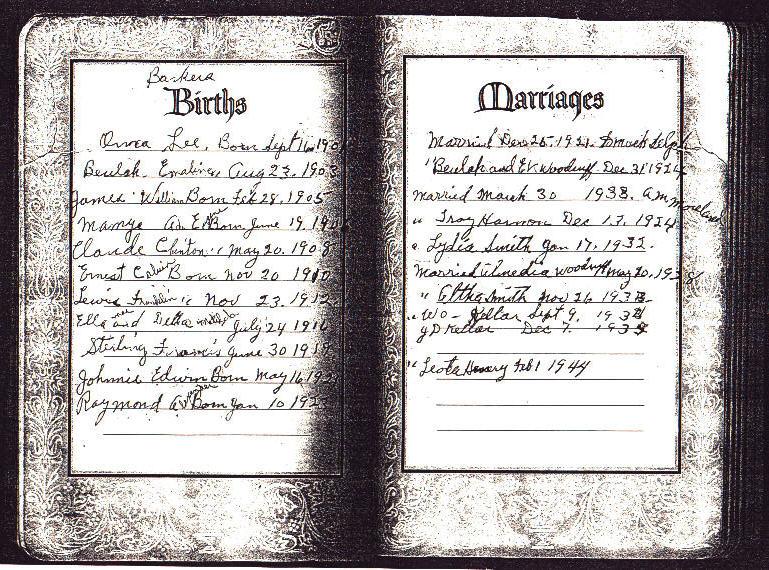 Barkers
Births
Orvea Lee, Born Sept 16 190
Beulah Emaline, Aug 23, 1903
James William Born Feb 28, 1905
Mamye Born June 19, 19
Claude Clinton " May 20, 1908
Ernest Calvin Born Nov 20 1910
Lewis Franklin " Nov 23, 1912
Ella and Della July 24 191
Sterling Francis June 30 191
Johnnie Edwin Born May 16 192
Raymond Born Jan 10 192
Marriages
Married Dec 25, 1921. to Mack
" Beulah and E.V. Woodruff Dec 31 1924
Married March 30 1938. A.M.
" Troy Harmon Dec 13, 1924
" Lydia Smith Jan 17, 1932.
Married Woodruff May 20, 193
" Smith Nov 26 193
" W O - Kellar Sept 9, 193
J D Kellar Dec 7, 193
" Leota Feb 1 1944